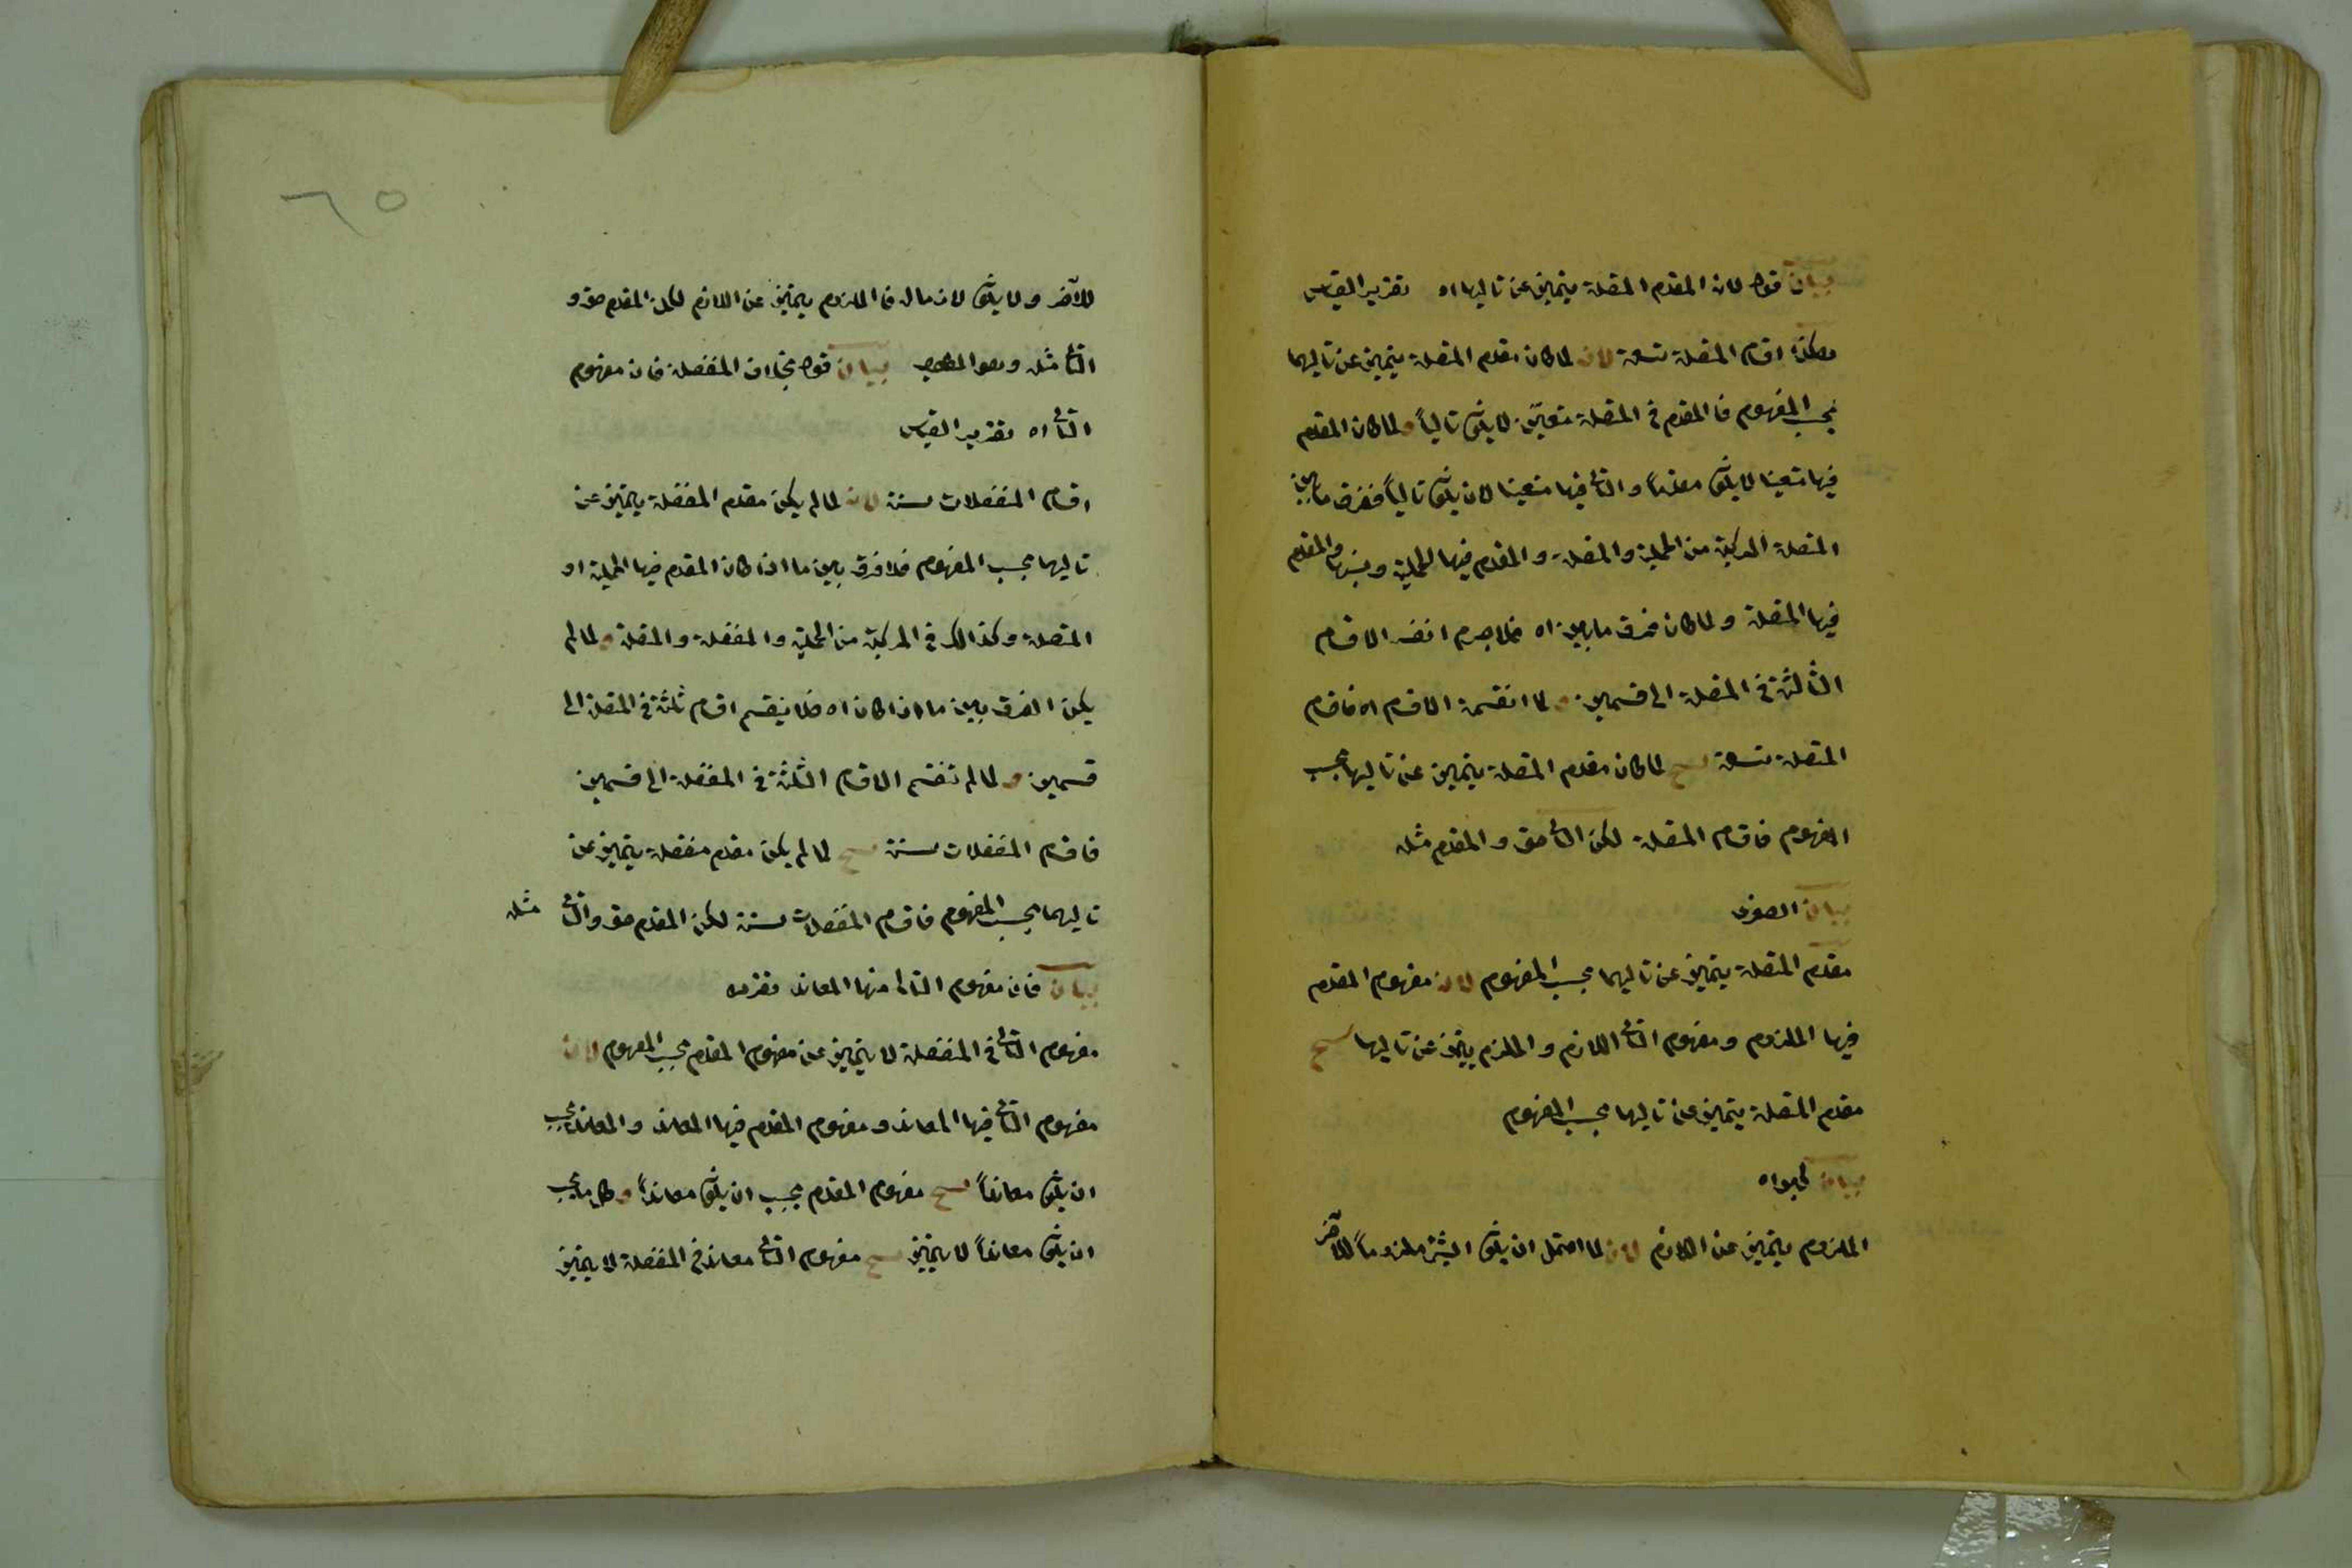 بيان قوله لان المقدم المتصلة يتميز عن تاليها اه تقرير القياس
هكذا اقسام المتصلة تسعة لان لما كان مقدم المتصلة يتميز عن تاليها
بحسب المفهوم فالمقدم في المتصلة متعين لا يكون تالياً ولما كان المقدم
فيها متعينا لا يكون مقدماً والتالى فيها متعينا لان يكون تالياً ففرق ما بين
المتصلة المركبة من الحملية والمتصلة والمقدم فيها الحملية وبينها والمقدم
فيها المتصلة ولما كان فرق ما بين اه فلا جرم انقسم الاقسام
الثالثة في المتصلة الى قسمين و لما انقسمة الاقسام اه فاقسام
المتصلة تسعة ينتج لما كان مقدم المتصلة يتميز عن تاليها بحسب
المفهوم فاقسام المتصلة لكن التالى حق والمقدم مثله
بيان الصغرى
مقدم المتصلة يتميز عن تاليها بحسب المفهوم لان مفهوم المقدم
فيها الملزوم ومفهوم التالى اللازم والملزم يتميز عن تاليها ينتج
مقدم المتصلة يتميز عن تاليها بحسب المفهوم
بيان
الملزوم يتميز عن اللازم لان لما احتمل ان يكون الشئ ملزوماً للآخر
٦٥
للآخر ولا يكون لازما له فالملزوم يتميز عن اللازم لكن المقدم حق و
التالى مثله وهو المطلوب بيان قوله بخلاف المنفصلة فان مفهوم
التالى اه تقرير القياس
اقسام المنفصلات ستة لان لما لم يكن مقدم المنفصلة يتميز عن
تاليها بحسب المفهوم فلا فرق بين ما اذا كان المقدم فيها الحملية او
المتصلة وكذالك في المركبة من الحملية والمنفصلة والمتصلة و لما لم
يكن الفرق بين ما اذا كان اه فلا ينقسم اقسام ثلثة في المتصلة الى
قسمين و لما لم تنقسم الاقسام الثلثة في المنفصلة الى قسمين
فاقسام المنفصلات ستة ينتج لما لم يكن مقدم منفصلة يتميز عن
تاليها بحسب المفهوم فاقسام المنفصلات ستة لكن المقدم حق والتالى مثله
بيان فان مفهوم التالى منها المعاند تقريره
مفهوم التالى في المنفصلة لا يتميز عن مفهوم المقدم بحسب المفهوم لان
مفهوم التالى فيها المعاند و مفهوم المقدم فيها المعاند والمعاند يجب
ان يكون معانداً ينتج مفهوم المقدم يجب ان يكون معانداً وكل ما يجب
ان يكون معانداً لا يتميز ينتج مفهوم التالى معاند في المنفصلة لا يتميز